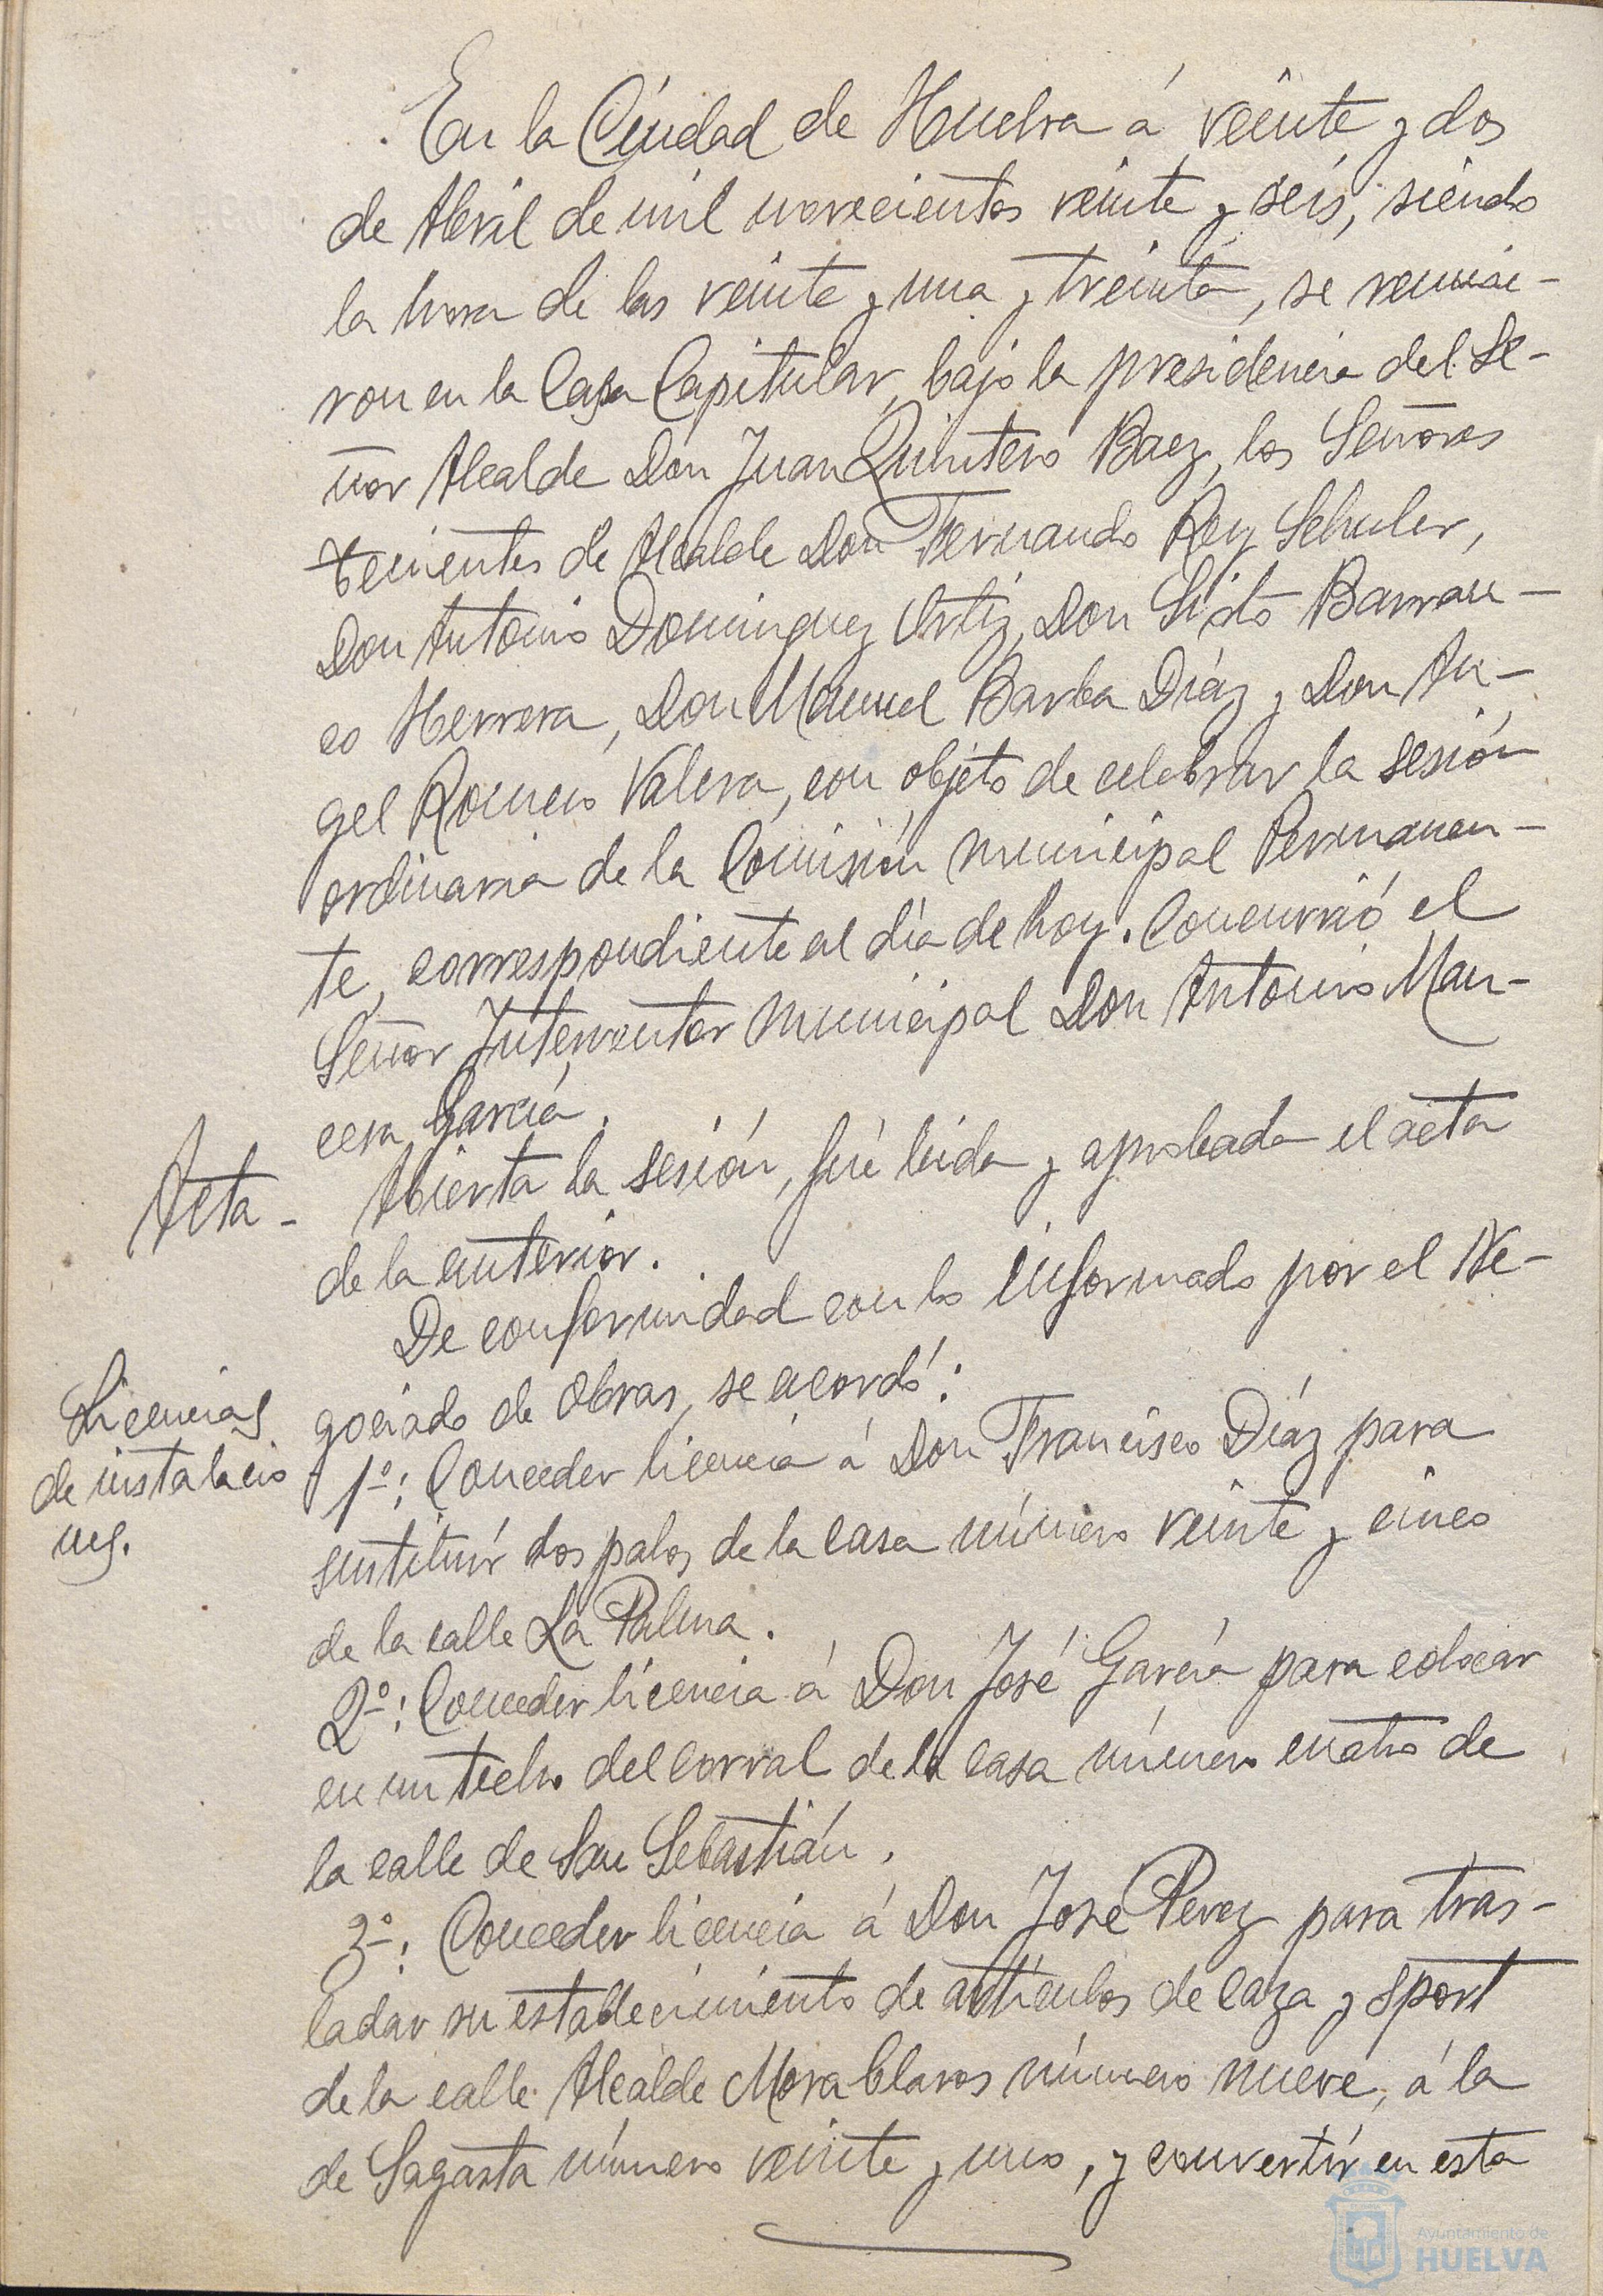 En la Ciudad de Huelva á veinte y dos
de Abril de mil novecientos veinte y seis, siendo
la hora de las veinte y una y treinta, se reunie-
ron en la Casa Capitular, bajo la presidencia del Se-
ñor Alcalde Don Juan Quintero Baez, los Señores
tenientes de Alcalde Don Fernando Rey Schuler,
Don Antonio Dominguez Ortiz, Don Sisto Barran-
co Herrera, Don Manuel Barba Diáz y Don An-
gel Romero Valera, con objeto de celebrar la sesión
ordinaria de la Comisión municipal Permanen-
te, correspondiente al día de hoy. Concurrió el
Señor Interventor municipal Don Antonio Man-
cera García.
Acta - Abierta la sesión, fué leida y aprobada el acta
de la anterior.
De conformidad con lo informado por el Ne-
Licencias
gociado de Obras, se acordó:
de instalacio
1º: Conceder licencia á Don Francisco Diáz para
nes.
sustituír dos palos de la casa número veinte y cinco
de la calle La Palma.
2º: Conceder licencia á Don José García para colocar
en un techo del corral de la casa número cuatro de
la calle de San Sebastián.
3º: Conceder licencia á Don José Perez para tras-
ladar su establecimiento de artículos de caza y sport
de la calle Alcalde Mora Claros número nueve, á la
de Sagasta número veinte y uno, y convertír en esta
Ayuntamiento de
HUELVA